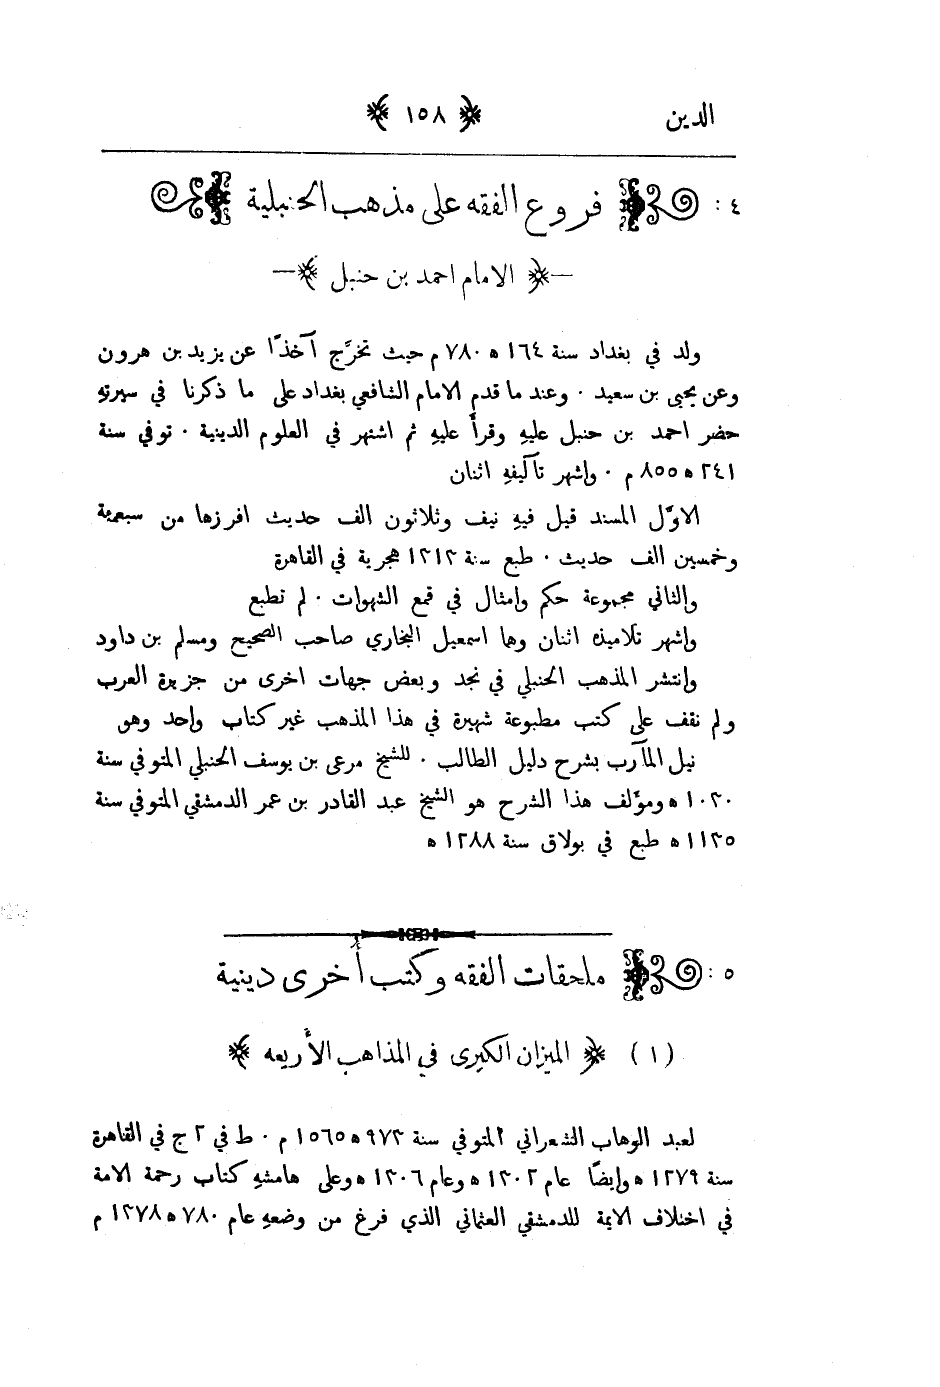 الدين ﴿ ١٥٨ ﴾
٤ : فروع الفقه على مذهب الحنبلية
﴿ الامام احمد بن حنبل ﴾
ولد في بغداد سنة ١٦٤ ه ٧٨٠ م حيث تخرَّج آخذًا عن يزيد بن هرون
وعن يحيى بن سعيد ٠ وعند ما قدم الامام الشافعي بغداد على ما ذكرنا في سيرتهِ
حضر احمد بن حنبل عليهِ وقرأ عليهِ ثم اشتهر في العلوم الدينية ٠ توفي سنة
٢٤١ ه ٨٥٥ م ٠ واشهر تآليفهِ اثنان
الاوَّل المسند قيل فيهِ نيف وثلاثون الف حديث افرزها من سبعمئة
وخمسين الف حديث ٠ طبع سنة ١٣١٣ هجرية في القاهرة
والثاني مجموعة حكم وامثال في قمع الشهوات ٠ لم تطبع
واشهر تلاميذه اثنان وهما اسمعيل البخاري صاحب الصحيح ومسلم بن داود
وانتشر المذهب الحنبلي في نجد وبعض جهات اخرى من جزيرة العرب
ولم نقف على كتب مطبوعة شهيرة في هذا المذهب غير كتاب واحد وهو
نيل المآرب بشرح دليل الطالب ٠ للشيخ مرعى بن يوسف الحنبلي المتوفي سنة
١٠٣٠ ه ومؤلف هذا الشرح هو الشيخ عبد القادر بن عمر الدمشقي المتوفي سنة
١١٣٥ ه طبع في بولاق سنة ١٢٨٨ ه
٥ : ملحقات الفقه وكتب أخرى دينية
(١) ﴿ الميزان الكبرى في المذاهب الأربعه ﴾
لعبد الوهاب الشعراني المتوفي سنة ٩٧٣ ه ١٥٦٥ م ٠ ط في ٢ ج في القاهرة
سنة ١٢٧٩ ه وايضًا عام ١٣٠٢ ه وعام ١٣٠٦ ه وعلى هامشهِ كتاب رحمة الامة
في اختلاف الايمة للدمشقي العثماني الذي فرغ من وضعهِ عام ٧٨٠ ه ١٣٧٨ م